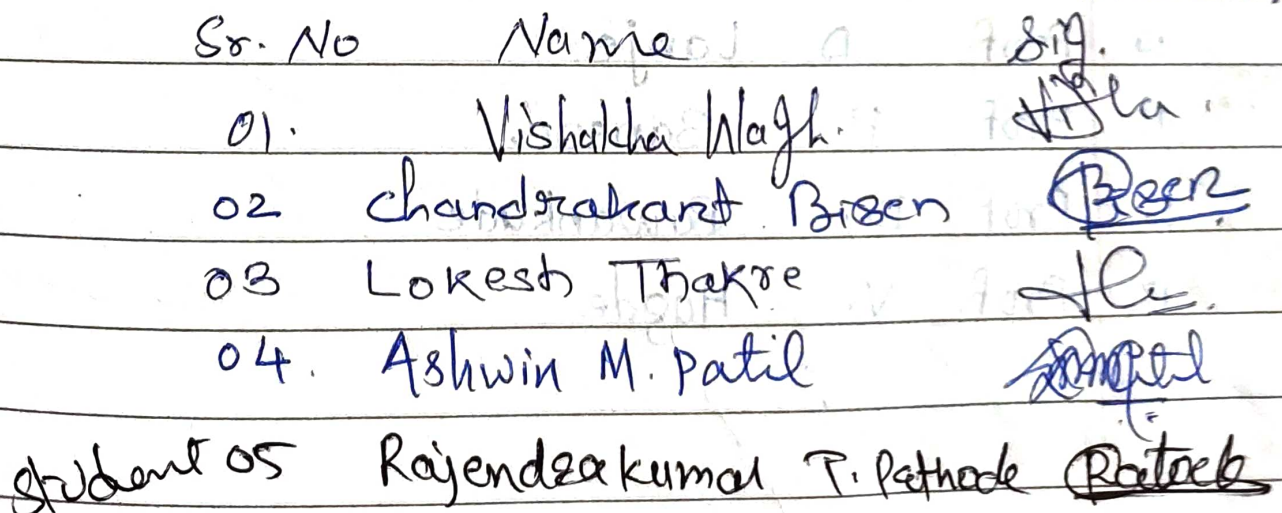 Sr. No Name Sig.
01. Vishakha Wagh.
02 Chandrakant Bisen Bisen
03 Lokesh Thakre
04. Ashwin M. Patil
Student 05 Rajendrakumar T. Pathode